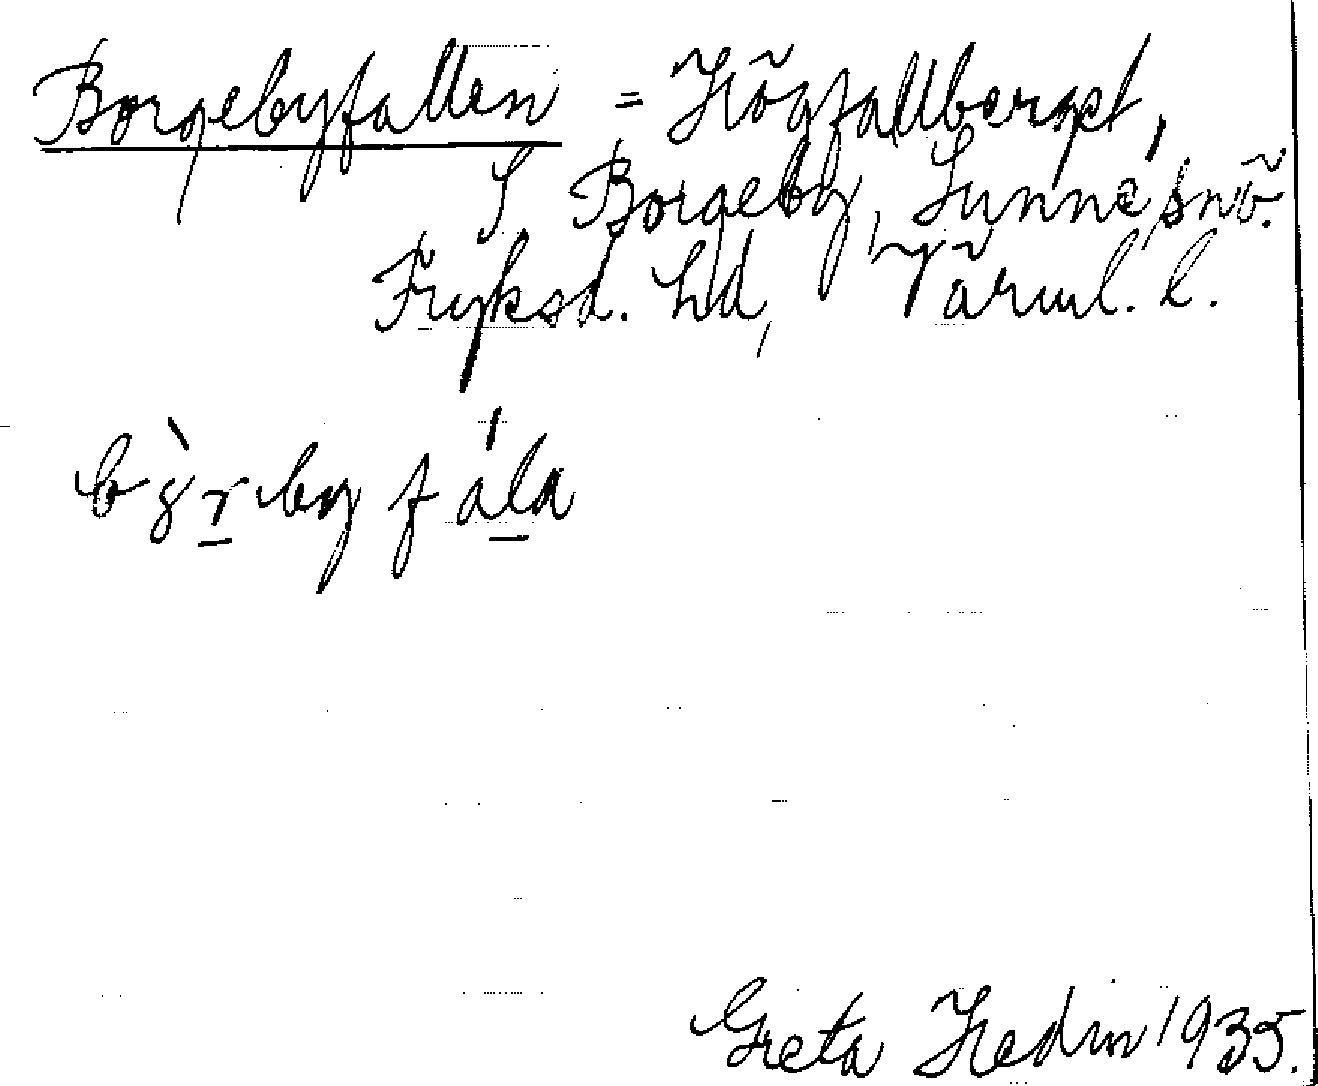 Borgebyfallen = Högfallberget,
S Borgeby, Sunne, snö.
Fryksd. hd, Värml. l.
bòrby fála
Greta Hedin 1935.